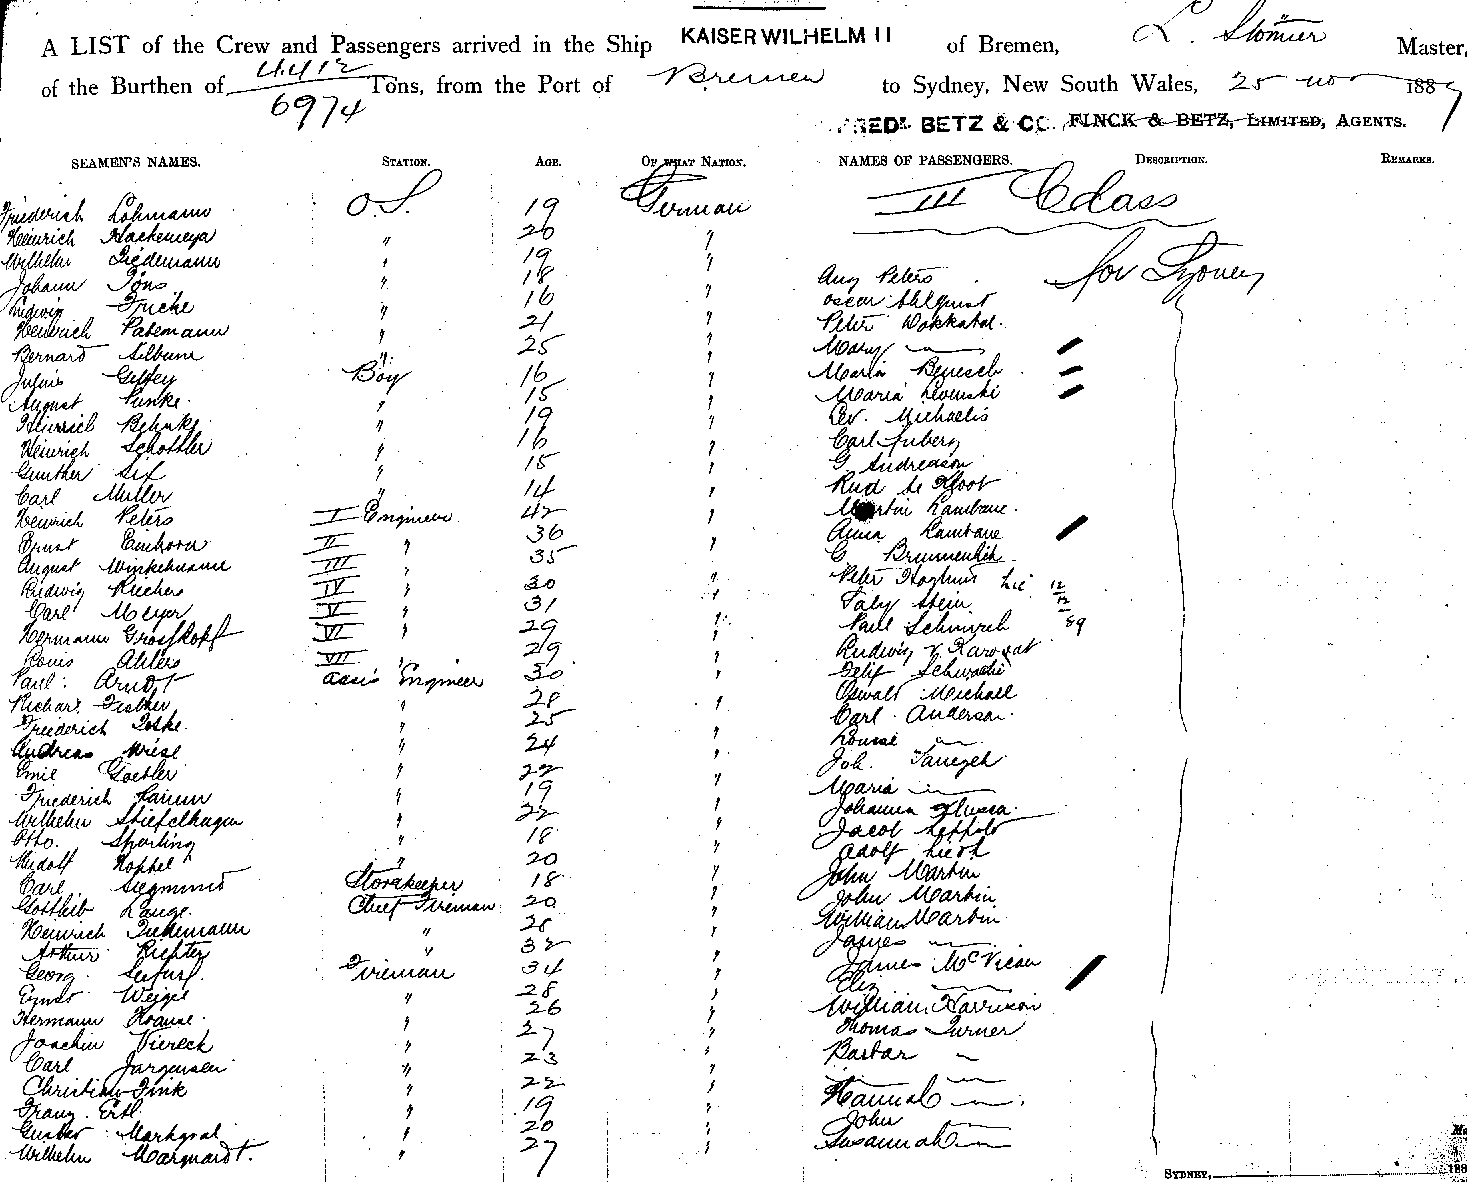 A LIST of the Crew and Passengers arrived in the Ship KAISER WILHELM II of Bremen, L. Störmer Master,
of the Burthen of 4412 Tons, from the Port of Bremen to Sydney, New South Wales, 25 Nov 1889
6974
FREDK BETZ & CO. FINCK & BETZ, LIMITED, AGENTS.
SEAMEN'S NAMES. STATION. AGE. OF WHAT NATION. NAMES OF PASSENGERS. DESCRIPTION. REMARKS.
Friederich Lohmann O.S. 19 German III Class
Heinrich Hackemeya " 20 "
Wilhelm Tiedemann " 19 " for Sydney
Johann Töns " 18 " Aug Peters
Ludwig Fricke " 16 " Oscar Ahlquist
Heinrich Patemann " 21 " Peter Dokkatal.
Bernard 25 " Mary —
Julius Giffey Boy 16 " Maria Benesch
August Funke " 15 " Maria Lewinski
Heinrich Behnke " 19 " Ev. Michaelis
Heinrich Schottler " 16 " Carl Juberg
Gunther " 15 " G Andreason
Carl Müller " 14 " Rud de Kloot
Heinrich Peters I Engineer 42 " Martin Lambane
Ernst Einhorn II " 36 " Anna Lambane
August Winkelmann III " 35 " G Brunnenlich
Ludwig Richers IV " 30 " Peter
Carl Meyer V " 31 " Stein 12/12/89
Hermann Grosskopf VI " 29 " Paul Schmirch
Louis Ahlers VII " 29 " Ludwig v.
Paul Arndt Assis Engineer 30 " Felix
Richard Fischer " 28 " Oswald Michael
Friederich " 25 " Carl Anderson
Andreas Wiese " 24 " Louise —
Emil Goebler " 22 " Joh.
Friederich " 19 " Maria —
Wilhelm Stiefelhagen " 22 " Johanna
Otto Sporling " 18 " Jacob
Rudolf Koppel " 20 " Adolf
Carl Siegmund Storekeeper 18 " John Martin
Gottlieb Lange Chief Fireman 20 " John Martin
Heinrich Tiedemann " 28 " William Martin
Arthur Richter " 32 " James —
Georg Seifurf. Fireman 34 " James McVicar
Ernst Weigel " 28 " Eliz —
Hermann Krause " 26 " William Harrison
Joachim Viereck " 27 " Thomas Turner
Carl Jürgensen " 23 " Barbar —
Christian Fink " 22 "
Franz Ertl " 19 " Hannah —
Gustav Markgraf " 20 " John
Wilhelm Marquardt. " 27 " Susannah —
SYDNEY,
188